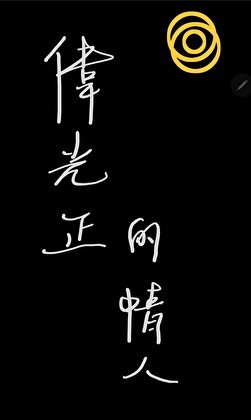 偉光正
的情人